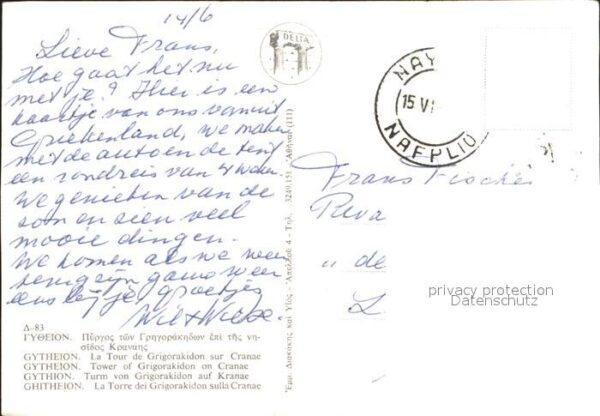 14/6
Lieve Frans,
Hoe gaat het nu
met je? Hier is een
kaartje van ons vanuit
Griekenland, we maken
met de auto en de tent
een rondreis van 4 weken.
We genieten van de
zon en zien veel
mooie dingen.
We komen als we weer
terug zijn gauw weer
eens bij je, groetjes
Wil +
Δ-83
ΓΥΘΕΙΟΝ. Πῦργος τῶν Γρηγοράκηδων ἐπὶ τῆς νη-
σῖδος Κρανάης
GYTHEION. La Tour de Grigorakidon sur Cranae
GYTHEION. Tower of Grigorakidon on Cranae
GYTHION. Turm von Grigorakidon auf Kranae
GHITHEION. La Torre dei Grigorakidon sulla Cranae
DELTA
Ἐμμ. Διακάκης καὶ Υἱὸς - Ἀπελλοῦ 4 - Τηλ. 3249.151 - Ἀθῆναι (111)
15 VI
NAFPLIO
Frans Fischer
Riva
„ de
L
privacy protection
Datenschutz